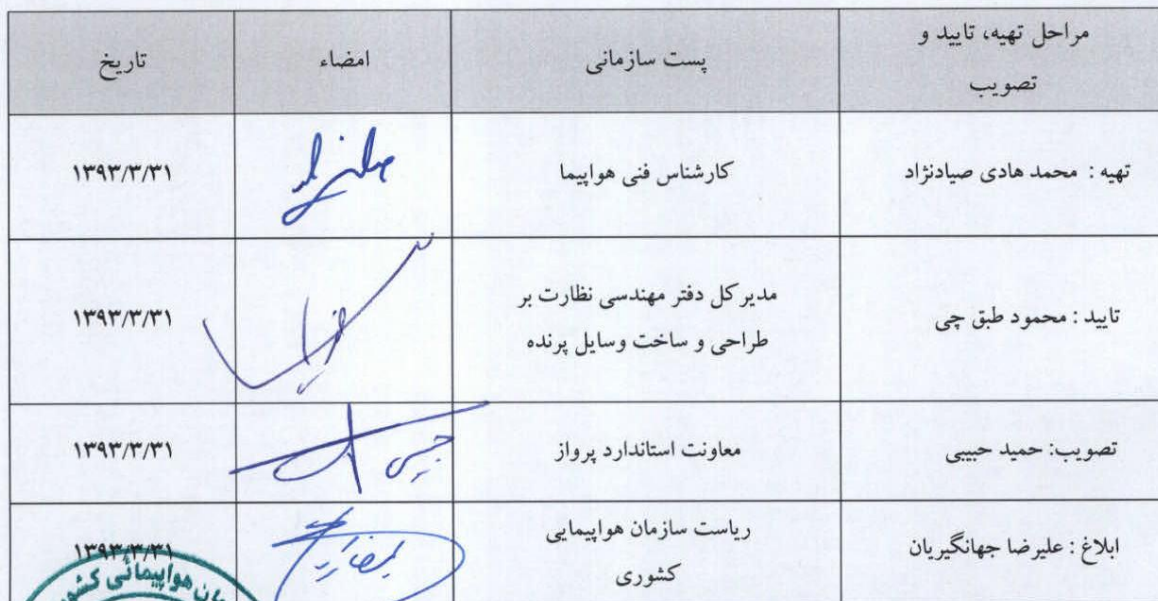 مراحل تهیه، تایید و
تصویب
پست سازمانی
امضاء
تاریخ
تهیه : محمد هادی صیادنژاد
کارشناس فنی هواپیما
۱۳۹۳/۳/۳۱
تایید : محمود طبق چی
مدیرکل دفتر مهندسی نظارت بر
طراحی و ساخت وسایل پرنده
۱۳۹۳/۳/۳۱
تصویب: حمید حبیبی
معاونت استاندارد پرواز
۱۳۹۳/۳/۳۱
ابلاغ : علیرضا جهانگیریان
ریاست سازمان هواپیمایی
کشوری
۱۳۹۳/۳/۳۱
هواپیمائی